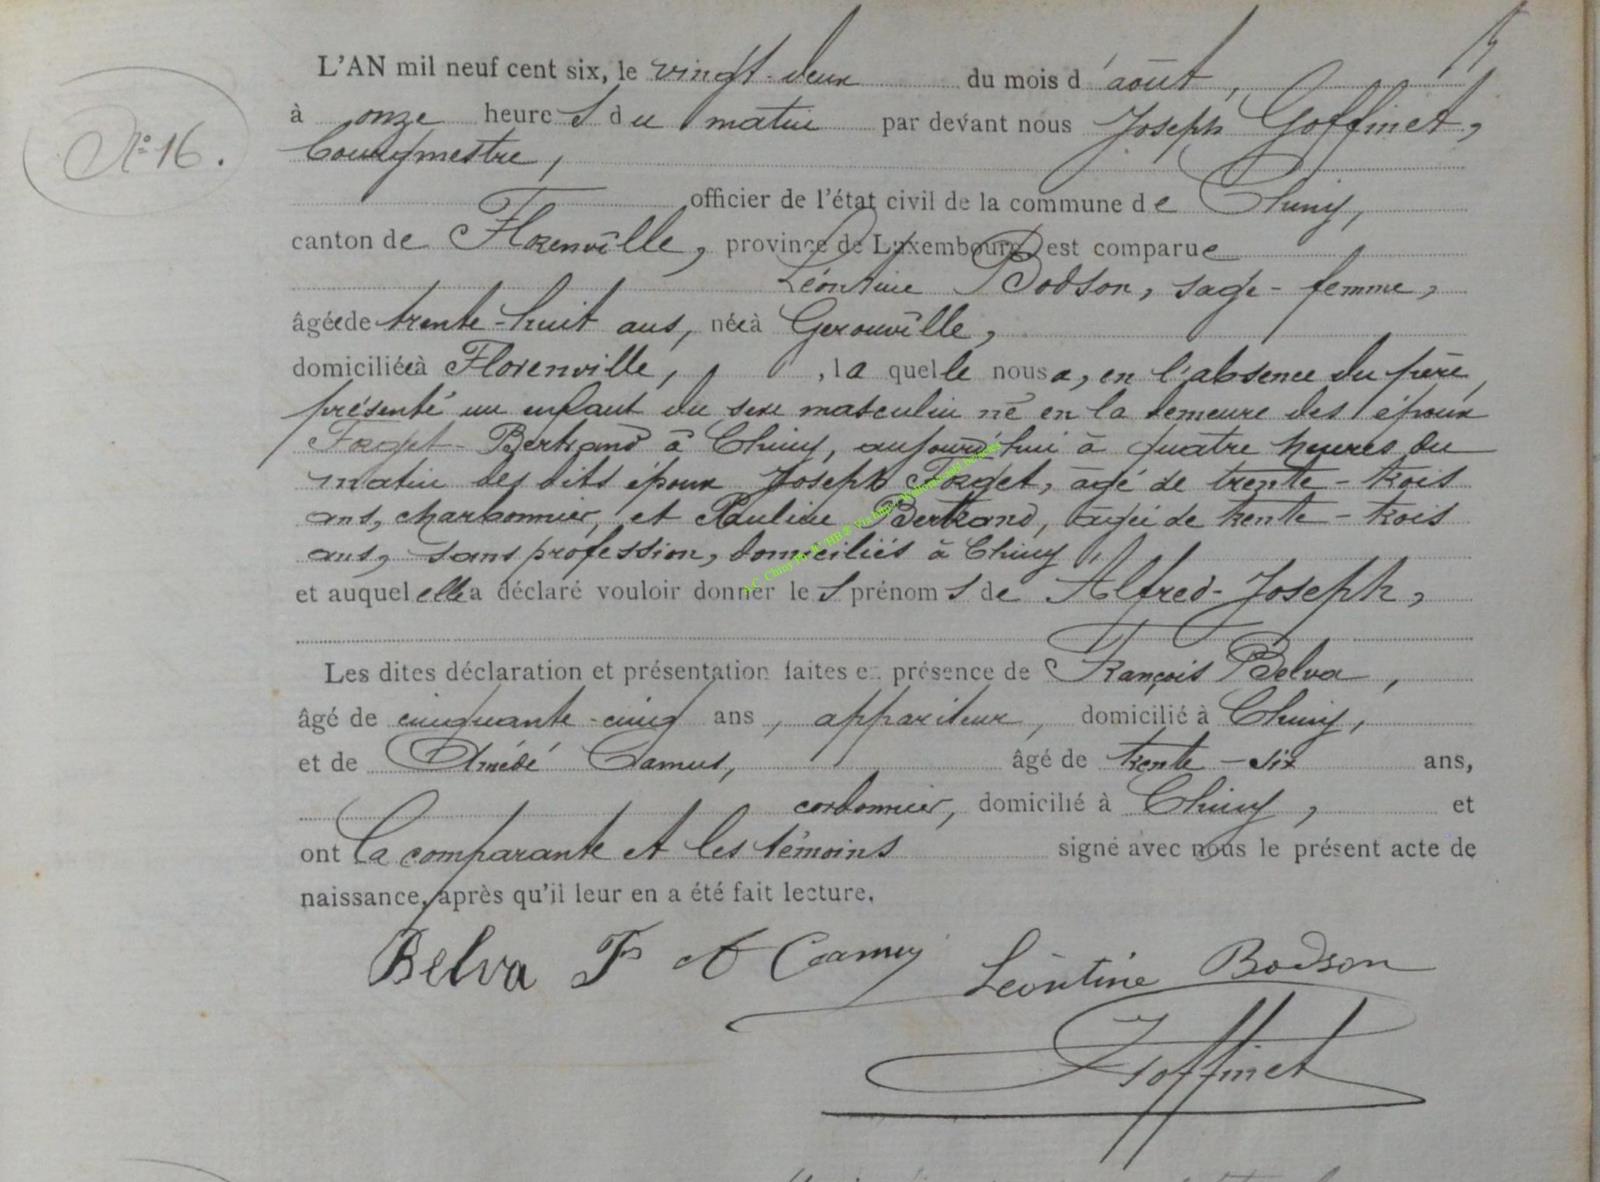 L'AN mil neuf cent six, le vingt-deux du mois d'août,
N° 16.
à onze heures du matin par devant nous Joseph Goffinet,
bourgmestre,
officier de l'état civil de la commune de Chiny,
canton de Florenville, province de Luxembourg est comparue
Léontine Bodson, sage-femme,
âgée de trente-huit ans, née à Gerouville,
domiciliée à Florenville, , la quelle nous a, en l'absence du père,
présenté un enfant du sexe masculin né en la demeure des époux
Forget-Bertrand à Chiny, aujourd'hui à quatre heures du
matin des dits époux Joseph Forget, âgé de trente-trois
ans, charbonnier, et Pauline Bertrand, âgée de trente-trois
ans, sans profession, domiciliés à Chiny,
et auquel elle a déclaré vouloir donner les prénoms de Alfred-Joseph,
Les dites déclaration et présentation faites en présence de François Belva,
âgé de cinquante-cinq ans, appariteur, domicilié à Chiny,
et de Amédé Camus, âgé de trente-six ans,
cordonnier, domicilié à Chiny, et
ont la comparante et les témoins signé avec nous le présent acte de
naissance, après qu'il leur en a été fait lecture.
Belva F A Camus Léontine Bodson
J Goffinet